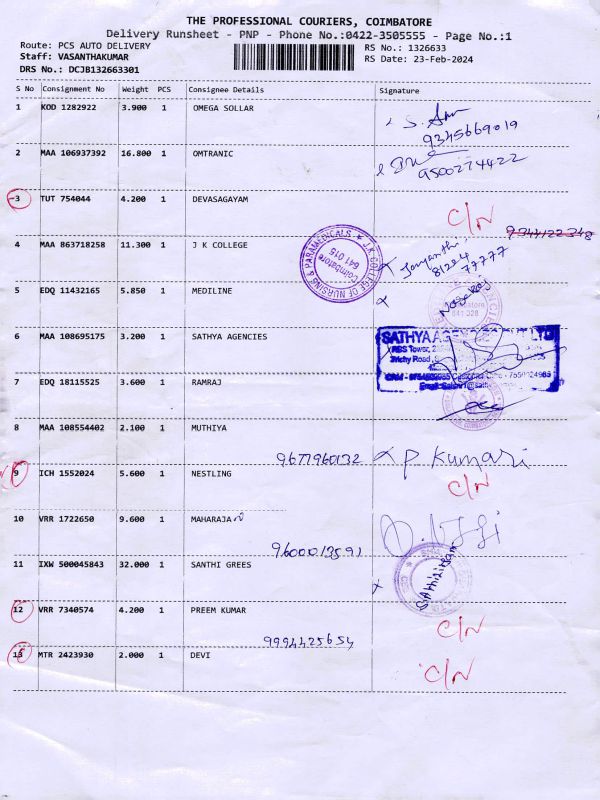 THE PROFESSIONAL COURIERS, COIMBATORE
Delivery Runsheet - PNP - Phone No.:0422-3505555 - Page No.:1
Route: PCS AUTO DELIVERY RS No.: 1326633
Staff: VASANTHAKUMAR RS Date: 23-Feb-2024
DRS No.: DCJB132663301
S No Consignment No Weight PCS Consignee Details Signature
1 KOD 1282922 3.900 1 OMEGA SOLLAR
9345669019
2 MAA 106937392 16.800 1 OMTRANIC
9500274422
3 TUT 754044 4.200 1 DEVASAGAYAM C/N
4 MAA 863718258 11.300 1 J K COLLEGE
J.K. COLLEGE OF NURSING & PARAMEDICALS
Coimbatore
641 015
81224
77777
5 EDQ 11432165 5.850 1 MEDILINE
641 028
6 MAA 108695175 3.200 1 SATHYA AGENCIES
SATHYA AGENCIES LTD
7 EDQ 18115525 3.600 1 RAMRAJ
8 MAA 108554402 2.100 1 MUTHIYA
9677960132 P Kumari
9 ICH 1552024 5.600 1 NESTLING C/N
10 VRR 1722650 9.600 1 MAHARAJAN
9600013591
11 IXW 500045843 32.000 1 SANTHI GREES
12 VRR 7340574 4.200 1 PREEM KUMAR C/N
9994425654
13 MTR 2423930 2.000 1 DEVI C/N